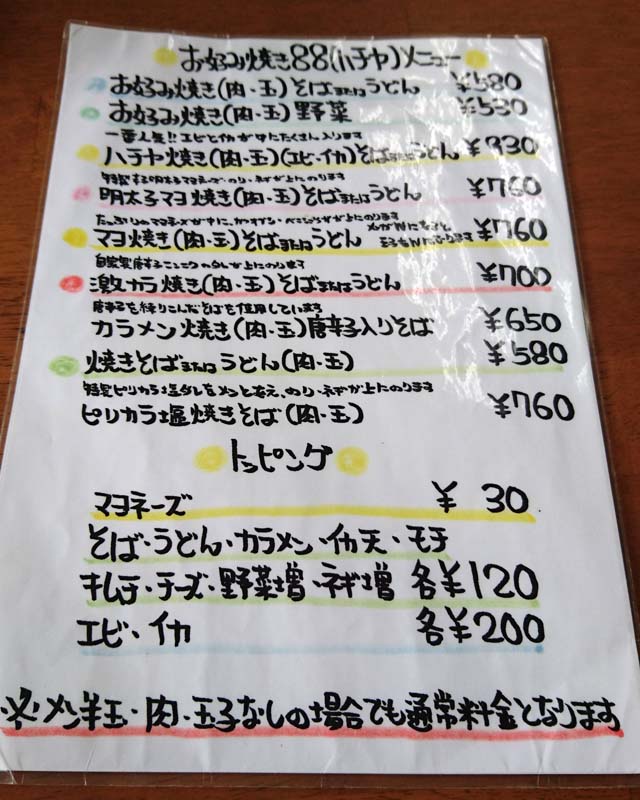 お好み焼き88(ハチヤ)メニュー
お好み焼き(肉・玉)そばまたはうどん ¥580
お好み焼き(肉・玉)野菜 ¥530
一番人気!!エビとイカが中にたくさん入ります
ハチヤ焼き(肉・玉)(エビ・イカ)そばまたはうどん ¥930
明太子マヨ焼き(肉・玉)そばまたはうどん ¥760
マヨ焼き(肉・玉)そばまたはうどん ¥760
激カラ焼き(肉・玉)そばまたはうどん ¥700
唐辛子を練りこんだそばを使用しています
カラメン焼き(肉・玉)唐辛子入りそば ¥650
焼きそばまたはうどん(肉・玉) ¥580
特製ピリカラ塩ダレをメンとあえ、のり・ネギが上にのります
ピリカラ塩焼きそば(肉・玉) ¥760
トッピング
マヨネーズ ¥ 30
そば・うどん・カラメン・イカ天・モチ
キムチ・チーズ・野菜増・ネギ増 各¥120
エビ・イカ 各¥200
※メン半玉・肉・玉子なしの場合でも通常料金となります